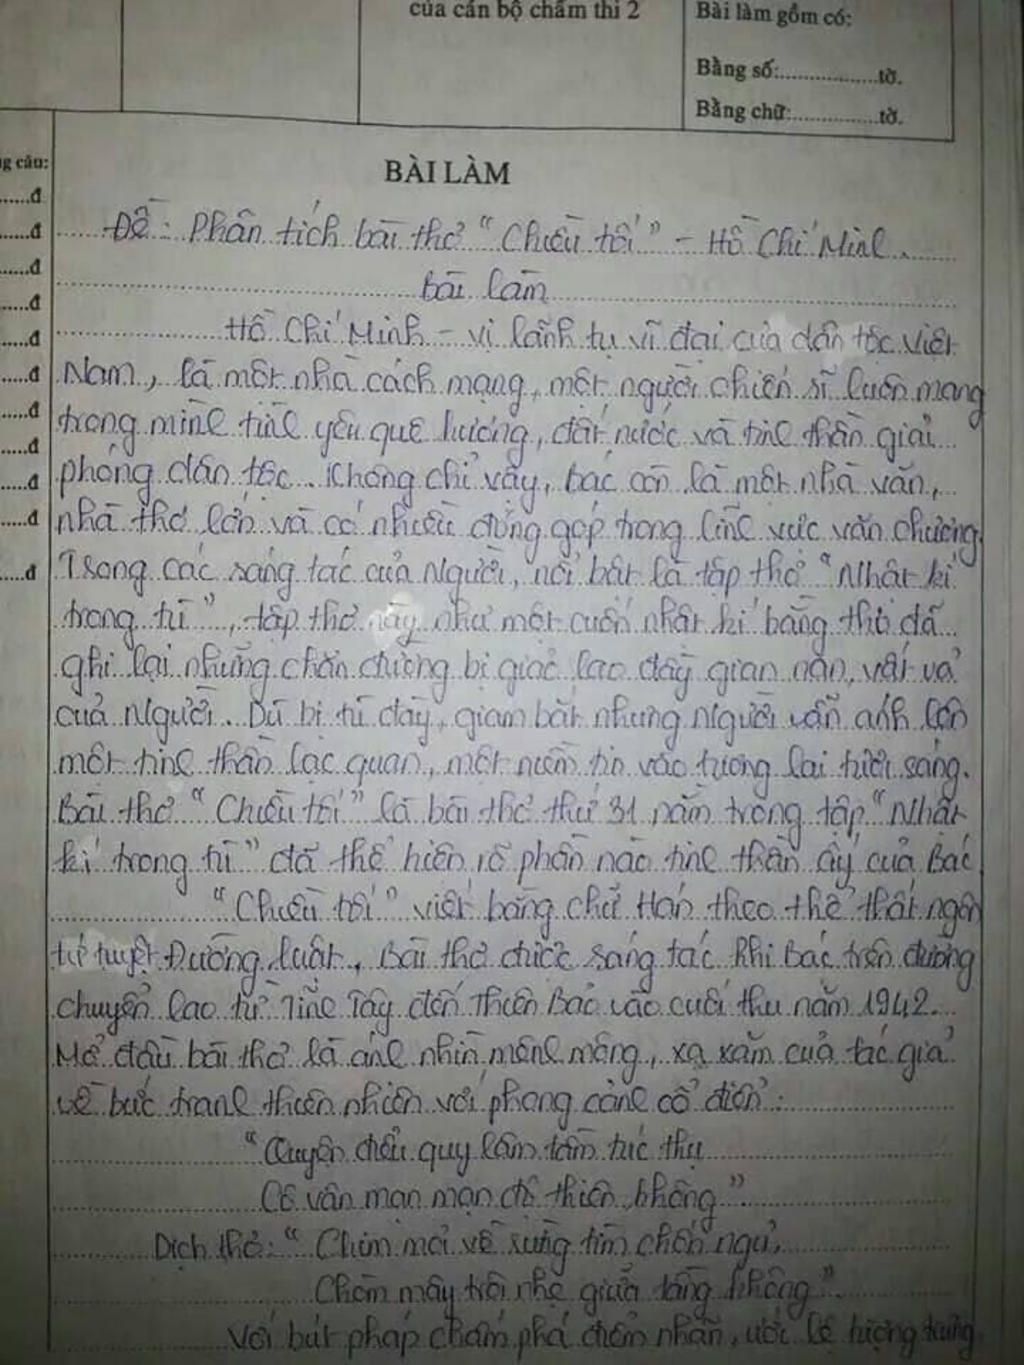 của cán bộ chấm thi 2
Bài làm gồm có:
Bằng số:.................tờ.
Bằng chữ:...............tờ.
g câu:
......đ
......đ
......đ
......đ
......đ
......đ
......đ
......đ
......đ
......đ
......đ
BÀI LÀM
Đề: Phân tích bài thơ "Chiều tối" - Hồ Chí Minh.
Bài làm
Hồ Chí Minh - vị lãnh tụ vĩ đại của dân tộc Việt
Nam, là một nhà cách mạng, một người chiến sĩ luôn mang
trong mình tình yêu quê hương, đất nước và tinh thần giải
phóng dân tộc. Không chỉ vậy, bác còn là một nhà văn,
nhà thơ lớn và có nhiều đóng góp trong lĩnh vực văn chương.
Trong các sáng tác của Người, nổi bật là tập thơ "Nhật kí
trong tù", tập thơ này như một cuốn nhật kí bằng thơ đã
ghi lại những chặn đường bị giải lao đầy gian nan, vất vả
của Người. Dù bị tù đày, giam bắt nhưng Người vẫn ánh lên
một tinh thần lạc quan, một niềm tin vào tương lai tươi sáng.
Bài thơ "Chiều tối" là bài thơ thứ 31 nằm trong tập "Nhật
kí trong tù" đã thể hiện rõ phần nào tinh thần ấy của Bác.
"Chiều tối" viết bằng chữ Hán theo thể thất ngôn
tứ tuyệt Đường luật. Bài thơ được sáng tác khi Bác trên đường
chuyển lao từ Tĩnh Tây đến Thiên Bảo vào cuối thu năm 1942.
Mở đầu bài thơ là ánh nhìn mênh mông, xa xăm của tác giả
về bức tranh thiên nhiên với phong cảnh cổ điển:
"Quyện điểu quy lâm tầm túc thụ
Cô vân mạn mạn độ thiên không"
Dịch thơ: "Chim mỏi về rừng tìm chốn ngủ,
Chòm mây trôi nhẹ giữa tầng không"
Với bút pháp chấm phá điểm nhãn, ước lệ tượng trưng